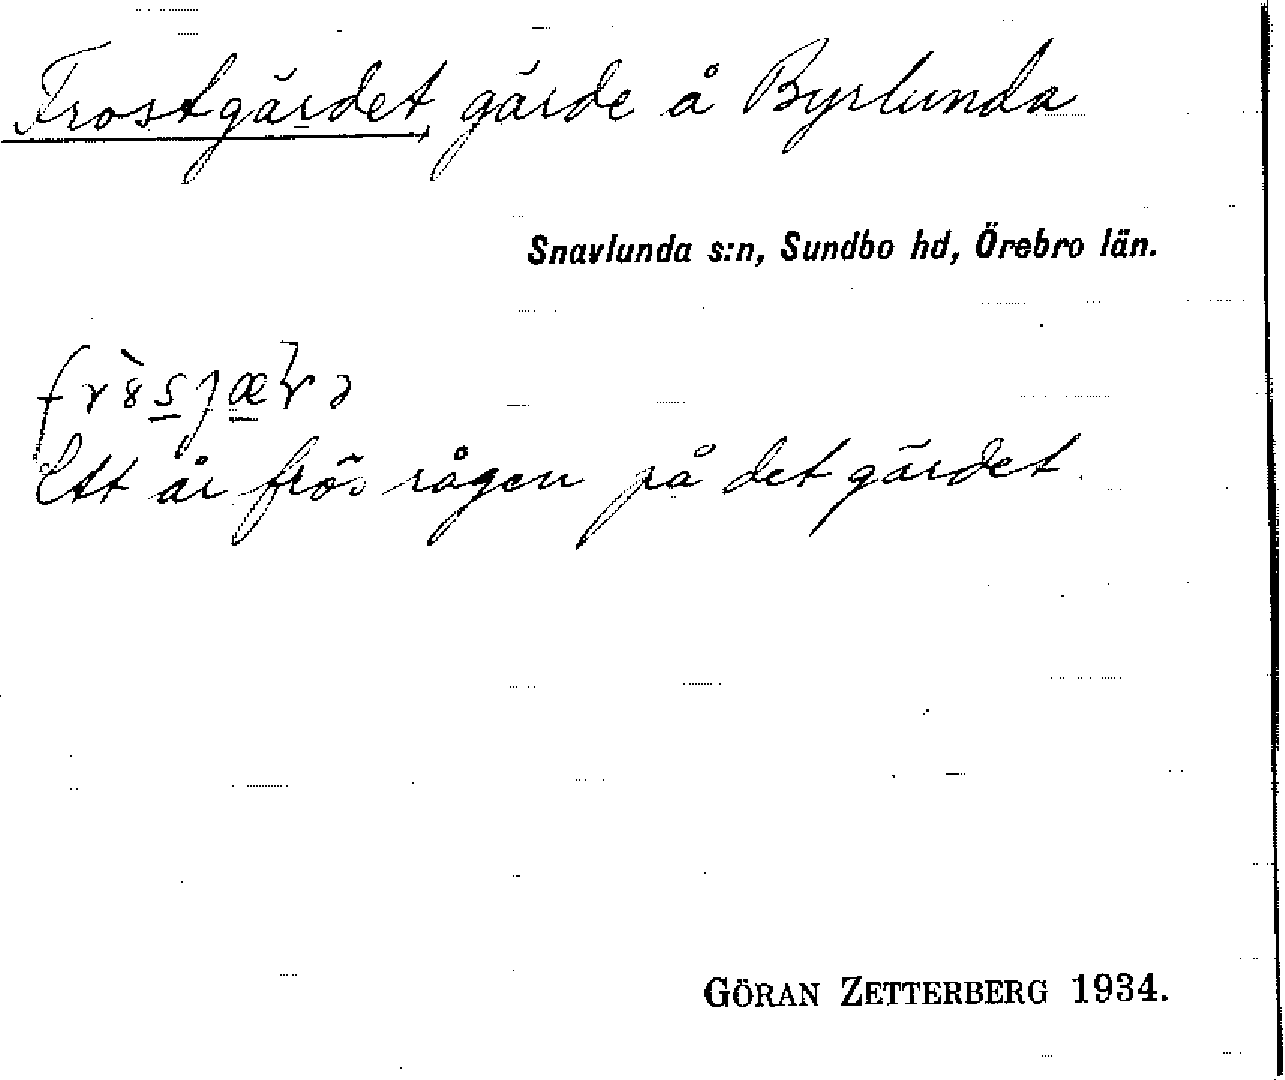 Frostgärdet, gärde å Byrlunda
Snavlunda s:n, Sundbo hd, Örebro län.
Ett år frös rågen på det gärdet
GÖRAN ZETTERBERG 1934.